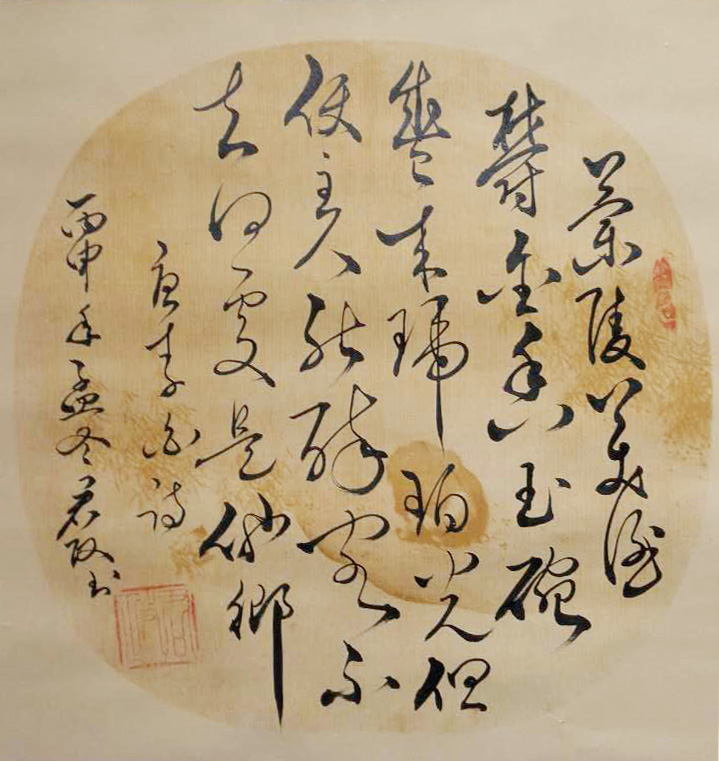 蘭陵美酒
鬱金香玉碗
盛来琥珀光但
使主人能醉客不
知何處是他鄉
唐李白诗
丙申年孟冬君书